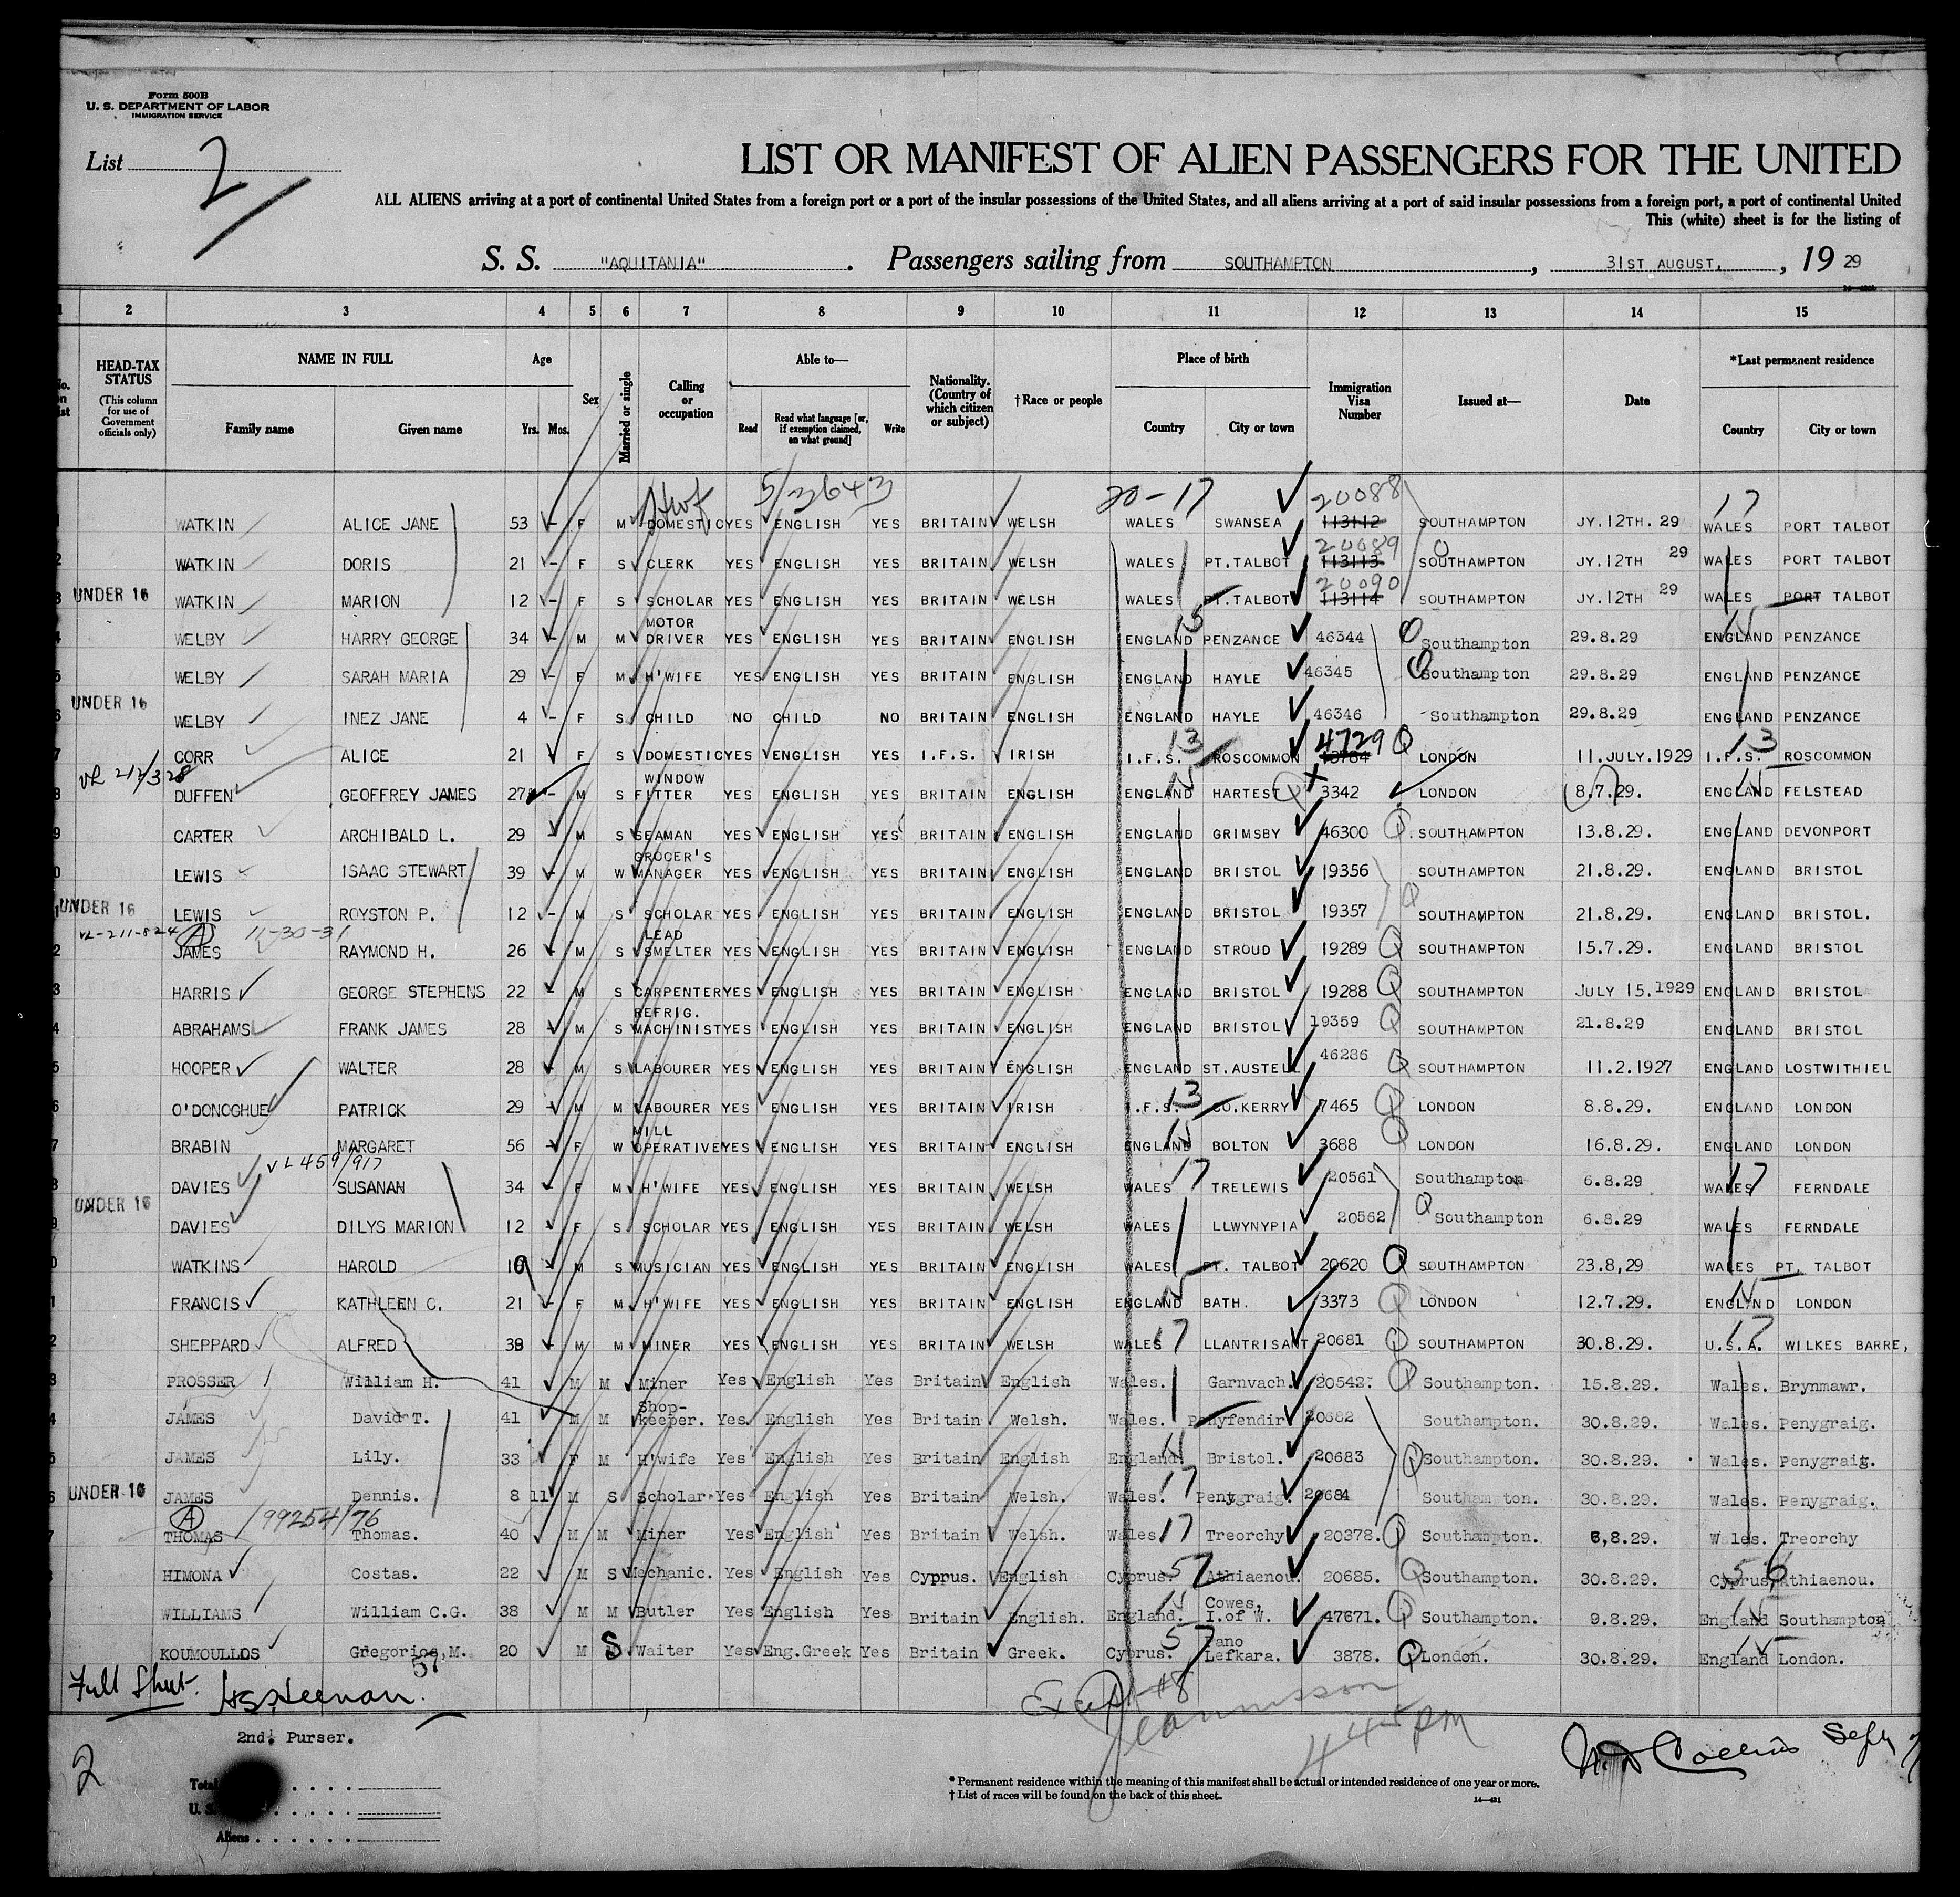 Form 500B
U. S. DEPARTMENT OF LABOR
IMMIGRATION SERVICE
List 2
LIST OR MANIFEST OF ALIEN PASSENGERS FOR THE UNITED
ALL ALIENS arriving at a port of continental United States from a foreign port or a port of the insular possessions of the United States, and all aliens arriving at a port of said insular possessions from a foreign port, a port of continental United
This (white) sheet is for the listing of
S. S. "AQUITANIA". Passengers sailing from SOUTHAMPTON, 31ST AUGUST, 19 29
1 2 3 4 5 6 7 8 9 10 11 12 13 14 15
HEAD-TAX STATUS (This column for use of Government officials only) NAME IN FULL Family name Given name Age Yrs. Mos. Sex Married or single Calling or occupation Able to— Read Read what language [or, if exemption claimed, on what ground] Write Nationality. (Country of which citizen or subject) †Race or people Place of birth Country City or town Immigration Visa Number Issued at— Date *Last permanent residence Country City or town
5/3643 20-17 20088 17
WATKIN ALICE JANE 53 - F M DOMESTIC YES ENGLISH YES BRITAIN WELSH WALES SWANSEA 113112 SOUTHAMPTON JY.12TH. 29 WALES PORT TALBOT
20089
WATKIN DORIS 21 - F S CLERK YES ENGLISH YES BRITAIN WELSH WALES PT.TALBOT 113113 SOUTHAMPTON JY.12TH 29 WALES PORT TALBOT
20090
UNDER 16 WATKIN MARION 12 - F S SCHOLAR YES ENGLISH YES BRITAIN WELSH WALES PT.TALBOT 113114 SOUTHAMPTON JY.12TH 29 WALES PORT TALBOT
WELBY HARRY GEORGE 34 - M M MOTOR DRIVER YES ENGLISH YES BRITAIN ENGLISH ENGLAND PENZANCE 46344 Southampton 29.8.29 ENGLAND PENZANCE
WELBY SARAH MARIA 29 - F M H'WIFE YES ENGLISH YES BRITAIN ENGLISH ENGLAND HAYLE 46345 Southampton 29.8.29 ENGLAND PENZANCE
UNDER 16 WELBY INEZ JANE 4 - F S CHILD NO CHILD NO BRITAIN ENGLISH ENGLAND HAYLE 46346 Southampton 29.8.29 ENGLAND PENZANCE
CORR ALICE 21 F S DOMESTIC YES ENGLISH YES I.F.S. IRISH I.F.S. 13 ROSCOMMON 4729 LONDON 11.JULY.1929 I.F.S. 13 ROSCOMMON
DUFFEN GEOFFREY JAMES 27 - M S WINDOW FITTER YES ENGLISH YES BRITAIN ENGLISH ENGLAND HARTEST 3342 LONDON 8.7.29. ENGLAND FELSTEAD
CARTER ARCHIBALD L. 29 - M S SEAMAN YES ENGLISH YES BRITAIN ENGLISH ENGLAND GRIMSBY 46300 SOUTHAMPTON 13.8.29. ENGLAND DEVONPORT
LEWIS ISAAC STEWART 39 - M W GROCER'S MANAGER YES ENGLISH YES BRITAIN ENGLISH ENGLAND BRISTOL 19356 SOUTHAMPTON 21.8.29. ENGLAND BRISTOL
UNDER 16 LEWIS ROYSTON P. 12 - M S SCHOLAR YES ENGLISH YES BRITAIN ENGLISH ENGLAND BRISTOL 19357 SOUTHAMPTON 21.8.29. ENGLAND BRISTOL.
VL-211-824 A 11-30-31
JAMES RAYMOND H. 26 - M S LEAD SMELTER YES ENGLISH YES BRITAIN ENGLISH ENGLAND STROUD 19289 SOUTHAMPTON 15.7.29. ENGLAND BRISTOL
HARRIS GEORGE STEPHENS 22 - M S CARPENTER YES ENGLISH YES BRITAIN ENGLISH ENGLAND BRISTOL 19288 SOUTHAMPTON JULY 15.1929 ENGLAND BRISTOL
ABRAHAMS FRANK JAMES 28 - M S REFRIG. MACHINIST YES ENGLISH YES BRITAIN ENGLISH ENGLAND BRISTOL 19359 SOUTHAMPTON 21.8.29 ENGLAND BRISTOL
HOOPER WALTER 28 - M S LABOURER YES ENGLISH YES BRITAIN ENGLISH ENGLAND ST.AUSTELL 46286 SOUTHAMPTON 11.2.1927 ENGLAND LOSTWITHIEL
O'DONOGHUE PATRICK 29 - M M LABOURER YES ENGLISH YES BRITAIN IRISH I.F.S. 13 CO.KERRY 7465 LONDON 8.8.29. ENGLAND LONDON
BRABIN MARGARET 56 - F W MILL OPERATIVE YES ENGLISH YES BRITAIN ENGLISH ENGLAND BOLTON 3688 LONDON 16.8.29. ENGLAND LONDON
VL459/917
DAVIES SUSANAH 34 - F M H'WIFE YES ENGLISH YES BRITAIN WELSH WALES 17 TRELEWIS 20561 Southampton 6.8.29 WALES 17 FERNDALE
UNDER 16 DAVIES DILYS MARION 12 - F S SCHOLAR YES ENGLISH YES BRITAIN WELSH WALES LLWYNYPIA 20562 Southampton 6.8.29 WALES FERNDALE
WATKINS HAROLD - M S MUSICIAN YES ENGLISH YES BRITAIN ENGLISH WALES PT. TALBOT 20620 SOUTHAMPTON 23.8,29 WALES PT. TALBOT
FRANCIS KATHLEEN C. 21 - F M H'WIFE YES ENGLISH YES BRITAIN ENGLISH ENGLAND BATH. 3373 LONDON 12.7.29. ENGLAND LONDON
SHEPPARD ALFRED 38 - M M MINER YES ENGLISH YES BRITAIN WELSH WALES 17 LLANTRISANT 20681 SOUTHAMPTON 30.8.29. U.S.A. 17 WILKES BARRE,
PROSSER William H. 41 M M Miner Yes English Yes Britain English Wales. Garnvach. 20542. Southampton. 15.8.29. Wales. Brynmawr.
JAMES David T. 41 M M Shop-keeper. Yes. English Yes Britain Welsh. Wales. Penyfendir 20682 Southampton. 30.8.29. Wales. Penygraig.
JAMES Lily. 33 F M H'wife Yes English Yes Britain English England Bristol. 20683 Southampton. 30.8.29. Wales. Penygraig.
UNDER 16 JAMES Dennis. 8 11 M S Scholar Yes English Yes Britain Welsh. Wales. 17 Penygraig. 20684 Southampton. 30.8.29. Wales. Penygraig.
A /99254/76
THOMAS Thomas. 40 M M Miner Yes English Yes Britain Welsh. Wales 17 Treorchy 20378. Southampton. 6,8.29. Wales. Treorchy
HIMONA Costas. 22 M S Mechanic. Yes English Yes Cyprus. English Cyprus. 57 Athiaenou. 20685. Southampton. 30.8.29. Cyprus, 56 Athiaenou.
WILLIAMS William C.G. 38 M M Butler Yes English Yes Britain English. England. Cowes, I.of W. 47671. Southampton. 9.8.29. England Southampton
KOUMOULLOS Gregorios,M. 20 M S Waiter Yes Eng.Greek Yes Britain Greek. Cyprus. 57 Pano Lefkara. 3878. London. 30.8.29. England London.
57
Full Sheet.
2nd. Purser.
445 pm
Collins Sept
2
Total
U. S.
Aliens
* Permanent residence within the meaning of this manifest shall be actual or intended residence of one year or more.
† List of races will be found on the back of this sheet.